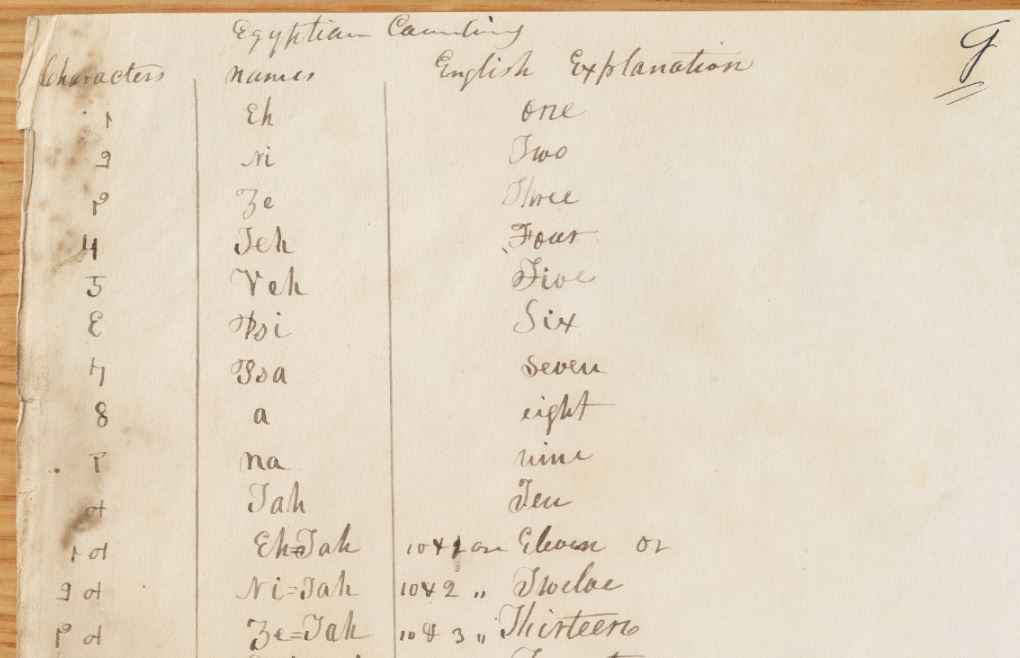 Egyptian Counting
9
Characters names English Explanation
Eh one
Ni Two
Ze Three
Teh Four
5 Veh Five
Psi Six
Psa seven
8 a eight
na nine
Tah Ten
Eh=Tah 10 & 1 or Eleven or
Ni=Tah 10 & 2 " Twelve
Ze=Tah 10 & 3 " Thirteen